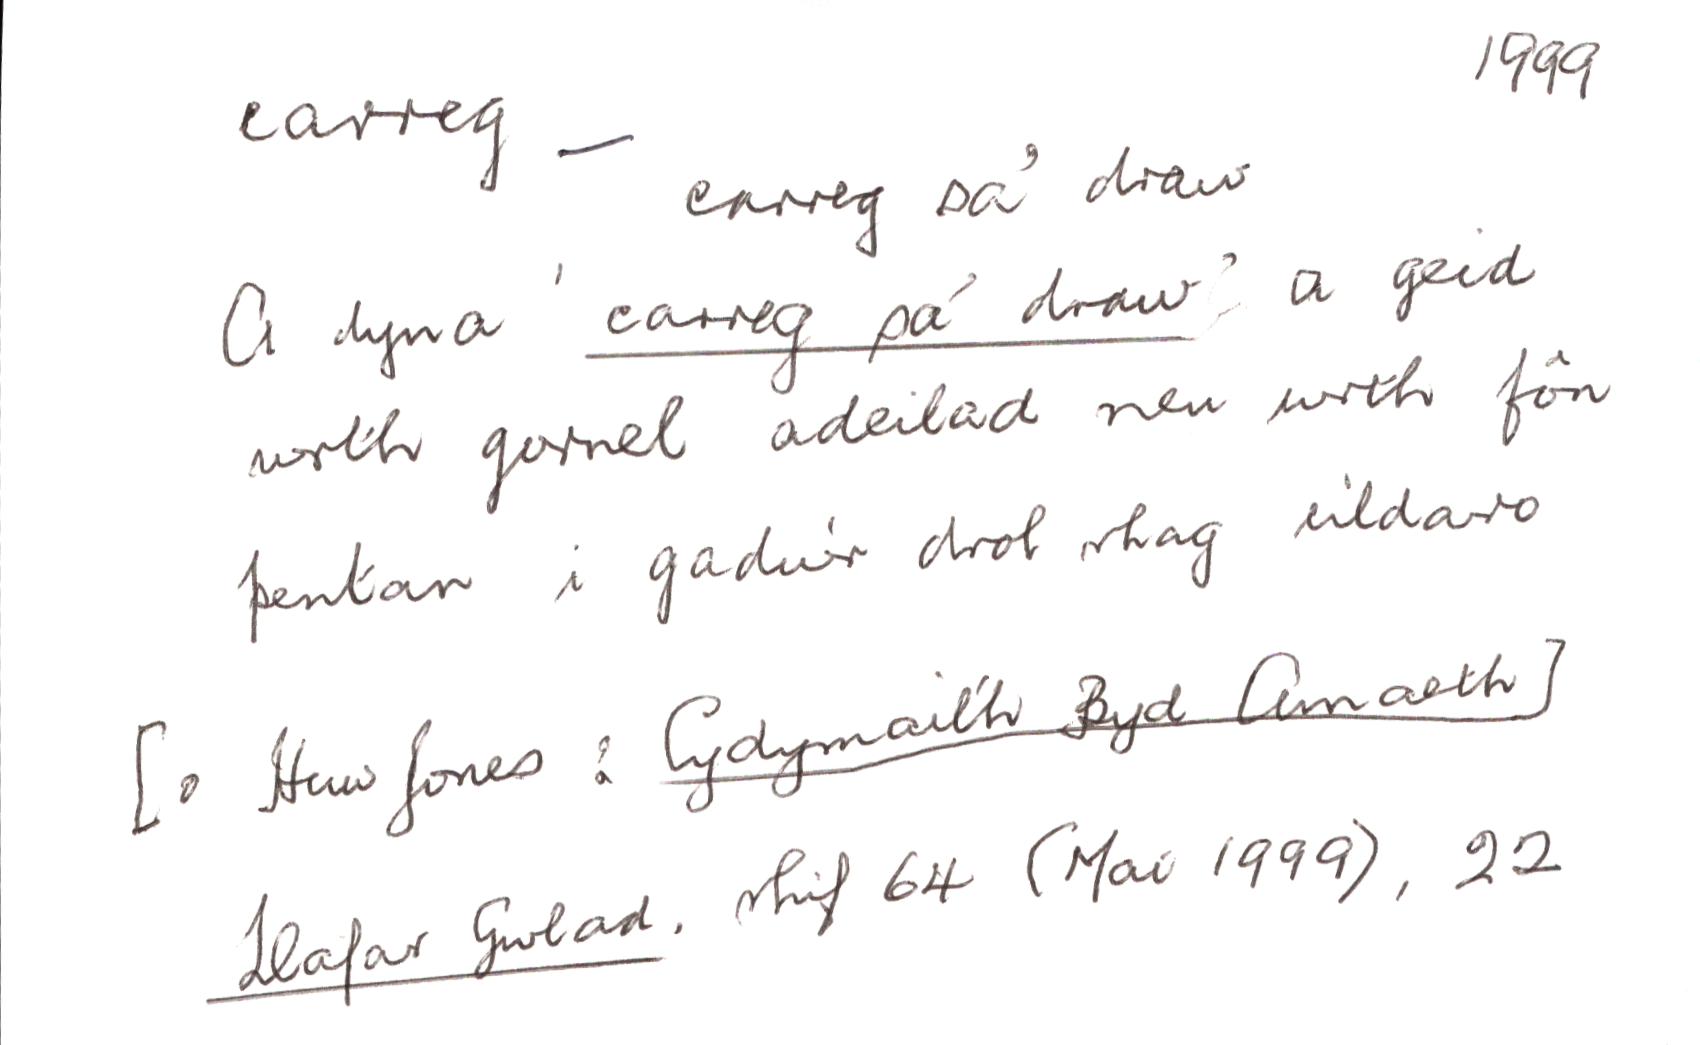 1999
carreg —
carreg sa' draw
A dyna 'carreg sa' draw' a geid
wrth gornel adeilad neu wrth fôn
pentan i gadw'r drol rhag ei ldaro
[o Huw Jones: Cydymaith Byd Amaeth]
Llafar Gwlad, rhif 64 (Mai 1999), 22